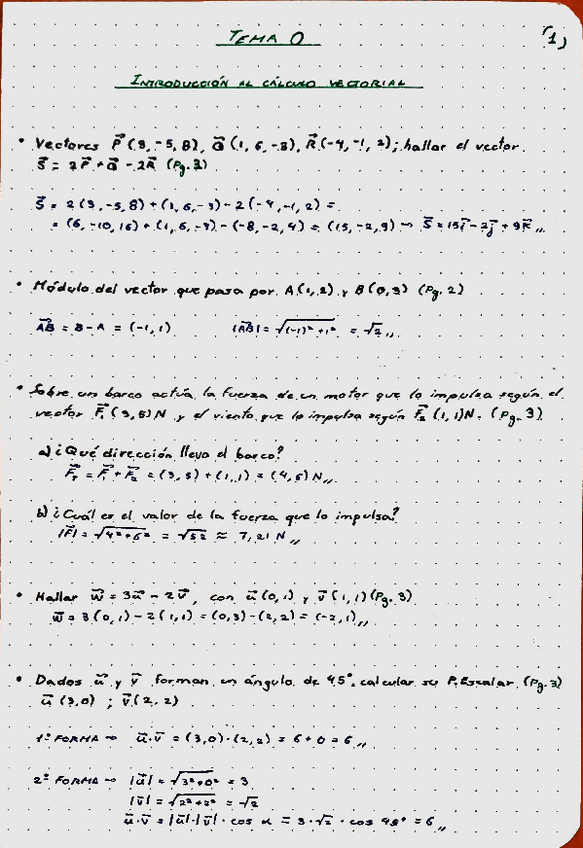 TEMA 0
(1)
INTRODUCCIÓN AL CÁLCULO VECTORIAL
• Vectores P⃗ (3,-5,8), Q⃗ (1,6,-3), R⃗ (-4,-1,2); hallar el vector
S⃗ = 2P⃗ + Q⃗ - 2R⃗ (Pg.2)
S⃗ = 2(3,-5,8) + (1,6,-3) - 2(-4,-1,2) =
= (6,-10,16) + (1,6,-3) - (-8,-2,4) = (15,-2,9) → S⃗ = 15i⃗ - 2j⃗ + 9k⃗,,
• Módulo del vector que pasa por A(1,2) y B(0,3) (Pg.2)
AB⃗ = B-A = (-1,1) |AB⃗| = √(-1)²+1² = √2,,
• Sobre un barco actúa la fuerza de un motor que lo impulsa según el
vector F⃗₁ (3,5)N y el viento que lo impulsa según F⃗₂ (1,1)N. (Pg.3)
a) ¿Qué dirección lleva el barco?
F⃗ₜ = F⃗₁ + F⃗₂ = (3,5) + (1,1) = (4,6) N,,
b) ¿Cuál es el valor de la fuerza que lo impulsa?
|F⃗| = √4²+6² = √52 ≈ 7,21 N,,
• Hallar w⃗ = 3u⃗ - 2v⃗, con u⃗ (0,1) y v⃗ (1,1) (Pg.3)
w⃗ = 3(0,1) - 2(1,1) = (0,3) - (2,2) = (-2,1),,
• Dados u⃗ y v⃗ forman un ángulo de 45°, calcular su P.Escalar (Pg.3)
u⃗ (3,0) ; v⃗ (2,2)
1ª FORMA → u⃗·v⃗ = (3,0)·(2,2) = 6+0 = 6,,
2ª FORMA → |u⃗| = √3²+0² = 3
|v⃗| = √2²+2² = √2
u⃗·v⃗ = |u⃗|·|v⃗|·cos α = 3·√2·cos 45° = 6,,